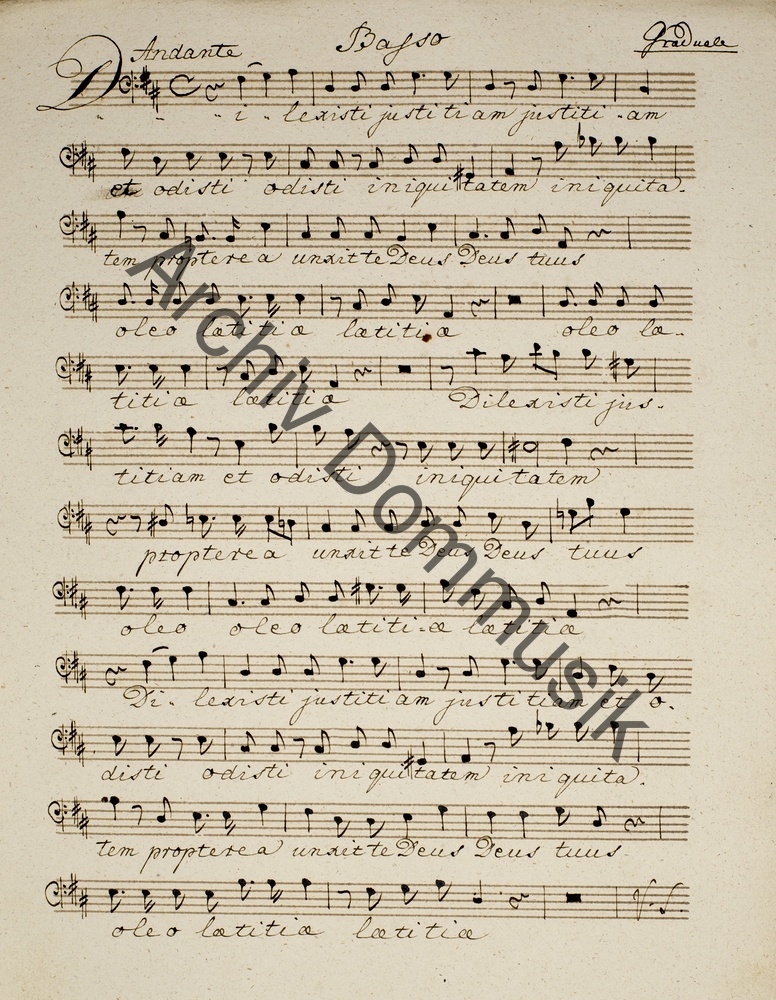 Andante Basso Graduale
Di - lexisti justitiam justiti - am
et odisti odisti iniquitatem iniquita -
tem propterea unxit te Deus Deus tuus
oleo lætitiæ lætitiæ oleo læ -
titiæ lætitiæ Dilexisti jus -
titiam et odisti iniquitatem
propterea unxit te Deus Deus tuus
oleo oleo lætiti - æ lætitiæ
Di - lexisti justitiam justitiam et o -
disti odisti iniquitatem iniquita -
tem propterea unxit te Deus Deus tuus
oleo lætitiæ lætitiæ V. S.
Archiv Dommusik